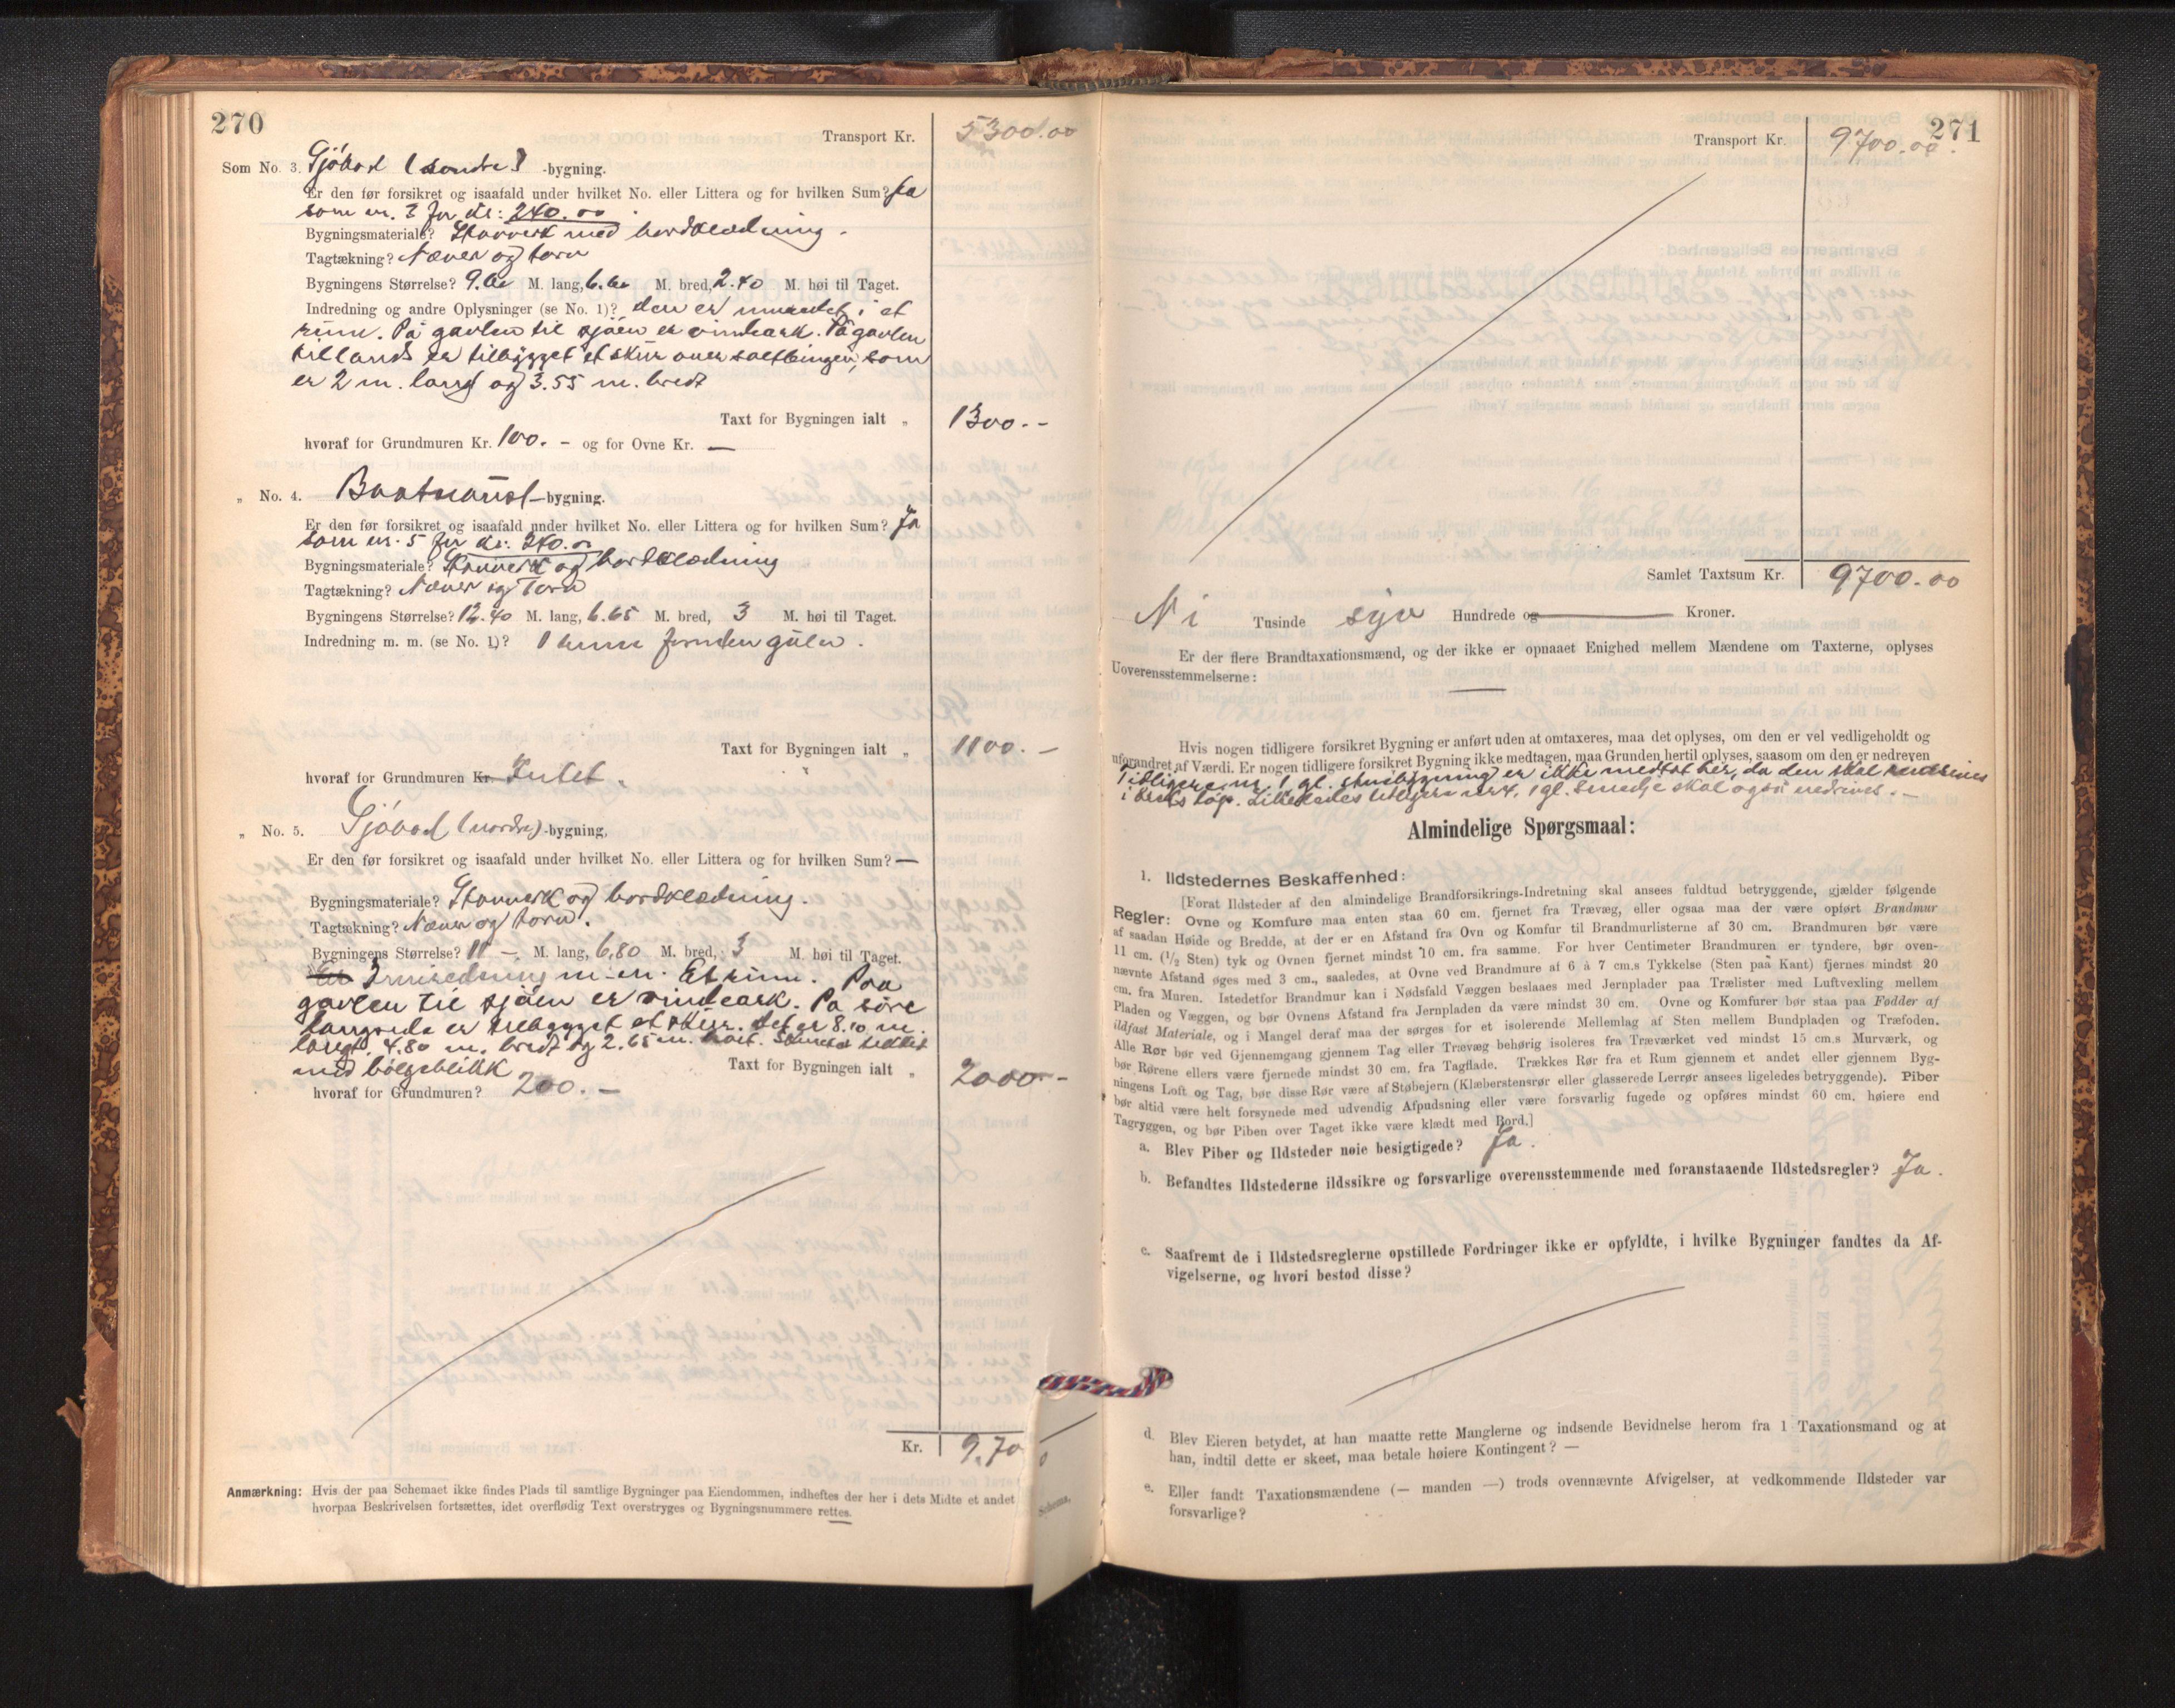 270
Transport Kr. 5300.00
Som No. 3. Sjöbod (söndre) -bygning.
Er den før forsikret og isaafald under hvilket No. eller Littera og for hvilken Sum? Ja
som nr. 3 for Kr: 240.00
Bygningsmateriale? Stavverk med bordklædning.
Tagtækning? Næver og torv
Bygningens Størrelse? 9.60 M. lang, 6.60 M. bred, 2.40 M. høi til Taget.
Indredning og andre Oplysninger (se No. 1)? den er innredet i et
rum. På gavlen til sjöen er vindark. På gavlen
tillands er tilbygget et skur over saltbingen, som
er 2 m. langt og 3.55 m. bredt
Taxt for Bygningen ialt „ 1300.-
hvoraf for Grundmuren Kr. 100.- og for Ovne Kr. —
„ No. 4. Baatnaust -bygning.
Er den før forsikret og isaafald under hvilket No. eller Littera og for hvilken Sum? Ja
som nr. 5 for Kr. 240.00
Bygningsmateriale? Stavverk og bordklædning
Tagtækning? Næver og Torv
Bygningens Størrelse? 12.40 M. lang, 6.65 M. bred, 3 M. høi til Taget.
Indredning m. m. (se No. 1)? 1 rum foruden gulv.
Taxt for Bygningen ialt „ 1100.-
hvoraf for Grundmuren Kr. Intet „
„ No. 5. Sjöbod (nordre) -bygning,
Er den før forsikret og isaafald under hvilket No. eller Littera og for hvilken Sum? —
Bygningsmateriale? Stavverk og bordklædning.
Tagtækning? Næver og torv.
Bygningens Størrelse? 11 - M. lang, 6,80 M. bred, 3 M. høi til Taget.
Innredning m.m. Et rum. Paa
gavlen til sjöen er vindark. På söre
langside er tilbygget et skur. det er 8.10 m.
langt, 4.80 m. bredt og 2.65 m. höit. Skuret tekket
med bölgeblikk
Taxt for Bygningen ialt „ 2000.-
hvoraf for Grundmuren? 200.-
Kr. 9.70
Anmærkning: Hvis der paa Schemaet ikke findes Plads til samtlige Bygninger paa Eiendommen, indheftes der her i dets Midte et andet Schema,
hvorpaa Beskrivelsen fortsættes, idet overflødig Text overstryges og Bygningsnummere rettes.
271
Transport Kr. 9700.00.
Samlet Taxtsum Kr. 9700.00
Ni Tusinde syv Hundrede og Kroner.
Er der flere Brandtaxationsmænd, og der ikke er opnaaet Enighed mellem Mændene om Taxterne, oplyses
Uoverensstemmelserne: —
Hvis nogen tidligere forsikret Bygning er anført uden at omtaxeres, maa det oplyses, om den er vel vedligeholdt og
uforandret af Værdi. Er nogen tidligere forsikret Bygning ikke medtagen, maa Grunden hertil oplyses, saasom om den er nedreven
Tidligere nr. 1 gl. stuebygning er ikke medtat her, da den skal nedrives
i årets löp. Likeledes tidligere nr 4, 1 gl. Smedje skal også nedrives. —
Almindelige Spørgsmaal:
1. Ildstedernes Beskaffenhed:
[Forat Ildsteder af den almindelige Brandforsikrings-Indretning skal ansees fuldtud betryggende, gjælder følgende
Regler: Ovne og Komfure maa enten staa 60 cm. fjernet fra Trævæg, eller ogsaa maa der være opført Brandmur
af saadan Høide og Bredde, at der er en Afstand fra Ovn og Komfur til Brandmurlisterne af 30 cm. Brandmuren bør være
11 cm. (1/2 Sten) tyk og Ovnen fjernet mindst 10 cm. fra samme. For hver Centimeter Brandmuren er tyndere, bør oven-
nævnte Afstand øges med 3 cm., saaledes, at Ovne ved Brandmure af 6 à 7 cm.s Tykkelse (Sten paa Kant) fjernes mindst 20
cm. fra Muren. Istedetfor Brandmur kan i Nødsfald Væggen beslaaes med Jernplader paa Trælister med Luftvexling mellem
Pladen og Væggen, og bør Ovnens Afstand fra Jernpladen da være mindst 30 cm. Ovne og Komfurer bør staa paa Fødder af
ildfast Materiale, og i Mangel deraf maa der sørges for et isolerende Mellemlag af Sten mellem Bundpladen og Træfoden.
Alle Rør bør ved Gjennemgang gjennem Tag eller Trævæg behørig isoleres fra Træværket ved mindst 15 cm.s Murværk, og
bør Rørene ellers være fjernede mindst 30 cm. fra Tagflade. Trækkes Rør fra et Rum gjennem et andet eller gjennem Byg-
ningens Loft og Tag, bør disse Rør være af Støbejern (Klæberstensrør eller glasserede Lerrør ansees ligeledes betryggende). Piber
bør altid være helt forsynede med udvendig Afpudsning eller være forsvarlig fugede og opføres mindst 60 cm. høiere end
Tagryggen, og bør Piben over Taget ikke være klædt med Bord.]
a. Blev Piber og Ildsteder nøie besigtigede? Ja.
b. Befandtes Ildstederne ildssikre og forsvarlige overensstemmende med foranstaaende Ildstedsregler? Ja.
c. Saafremt de i Ildstedsreglerne opstillede Fordringer ikke er opfyldte, i hvilke Bygninger fandtes da Af-
vigelserne, og hvori bestod disse?
d. Blev Eieren betydet, at han maatte rette Manglerne og indsende Bevidnelse herom fra 1 Taxationsmand og at
han, indtil dette er skeet, maa betale høiere Kontingent? —
e. Eller fandt Taxationsmændene (— manden —) trods ovennævnte Afvigelser, at vedkommende Ildsteder var
forsvarlige?